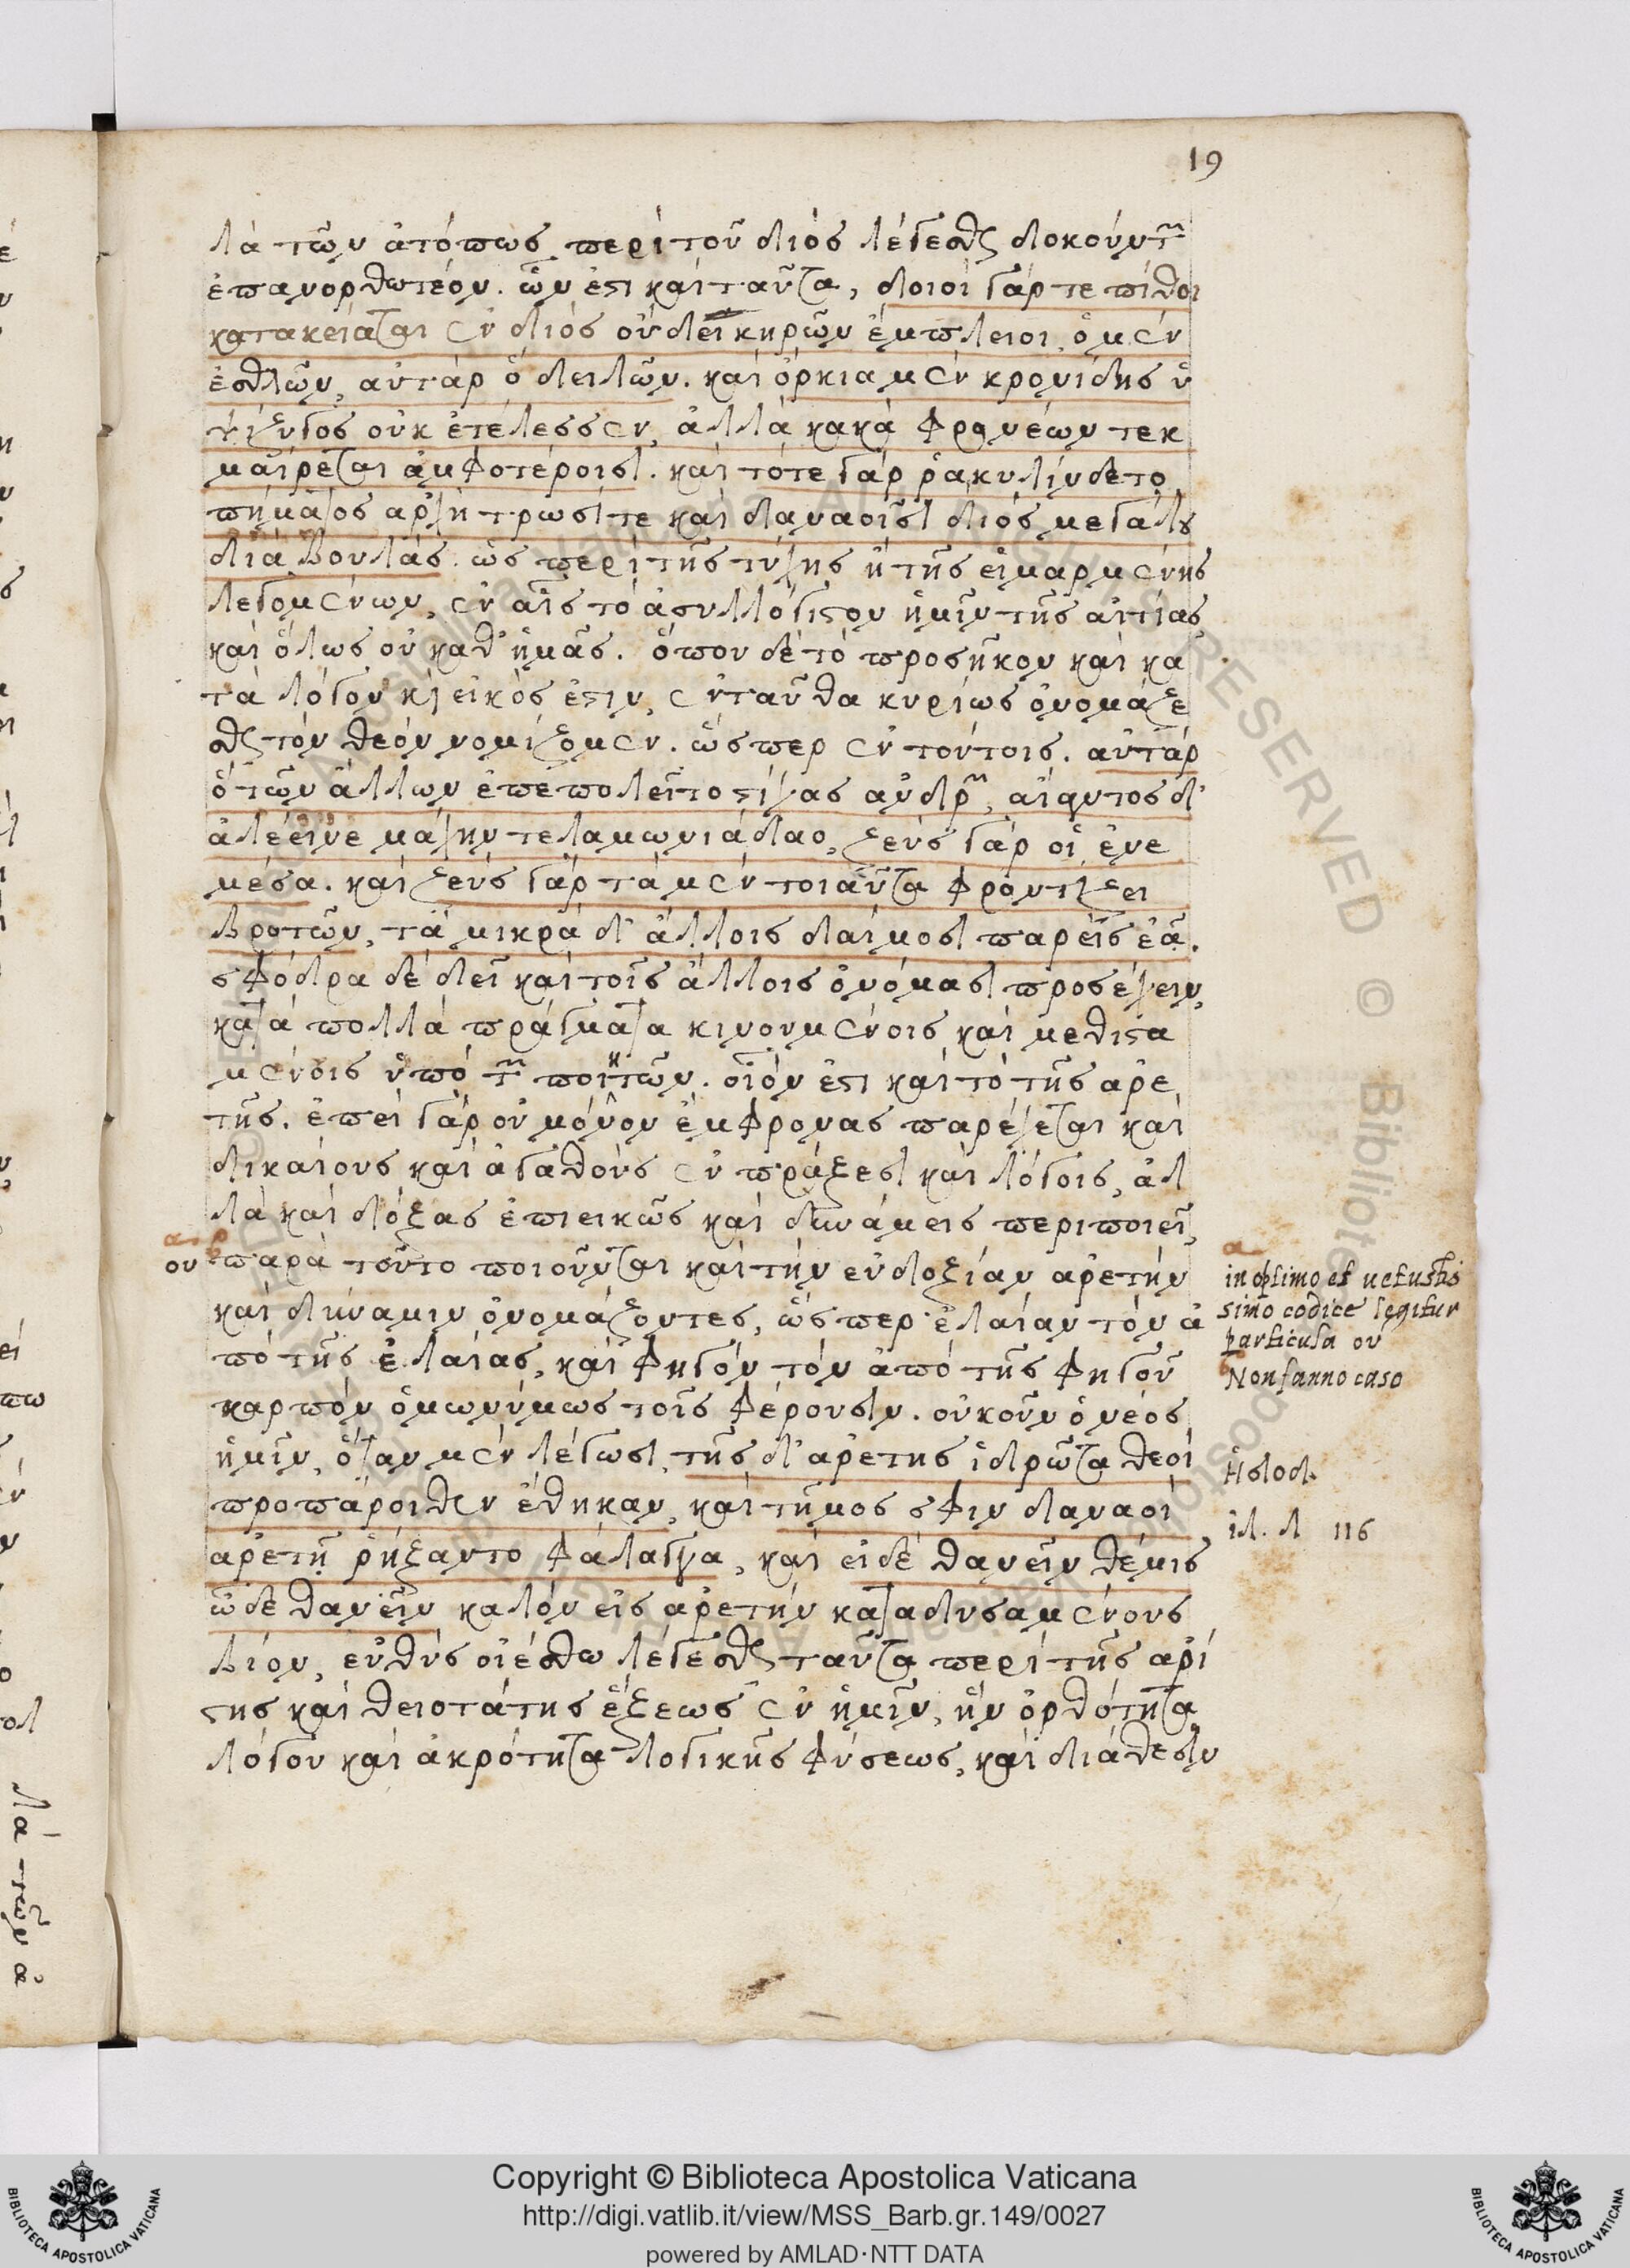 19
λὰ τῶν ἀτόπως περὶ τοῦ διὸς λέγεσθαι δοκούντων
ἐπανορθωτέον. ὧν ἐστι καὶ ταῦτα, δοιοὶ γάρ τε πίθοι
κατακείαται ἐν διὸς οὔδει κηρῶν ἔμπλειοι, ὁ μὲν
ἐσθλῶν, αὐτὰρ ὁ δειλῶν. καὶ ὅρκια μὲν κρονίδης ὑ
ψίζυγος οὐκ ἐτέλεσσεν, ἀλλὰ κακὰ φρονέων τεκ
μαίρεται ἀμφοτέροισι. καὶ τότε γάρ ῥα κυλίνδετο
πήματος ἀρχὴ τρωσί τε καὶ δαναοῖσι διὸς μεγάλου
διὰ βουλάς. ὡς περὶ τῆς τύχης ἢ τῆς εἱμαρμένης
λεγομένων, ἐν αἷς τὸ ἀσυλλόγιστον ἡμῖν τῆς αἰτίας
καὶ ὅλως οὐ καθ' ἡμᾶς. ὅπου δὲ τὸ προσῆκον καὶ κα
τὰ λόγον κὶ εἰκός ἐστιν, ἐνταῦθα κυρίως ὀνομάζε
σθαι τὸν θεὸν νομίζομεν. ὥσπερ ἐν τούτοις. αὐτὰρ
ὁ τῶν ἄλλων ἐπεπολεῖτο στίχας ἀνδρῶν, αἴαντος δ'
ἀλέεινε μάχην τελαμωνιάδαο, ζεὺς γάρ οἱ ἐνε
μέσα. καὶ ζεὺς γὰρ τὰ μὲν τοιαῦτα φροντίζει
βροτῶν, τὰ μικρὰ δ' ἄλλοις δαίμοσι παρεὶς ἐᾷ.
σφόδρα δὲ δεῖ καὶ τοῖς ἄλλοις ὀνόμασι προσέχειν,
κατὰ πολλὰ πράγματα κινουμένοις καὶ μεθιστα
μένοις ὑπὸ τῶν ποιητῶν. οἷόν ἐστι καὶ τὸ τῆς ἀρε
τῆς. ἐπεὶ γὰρ οὐ μόνον ἔμφρονας παρέχεται καὶ
δικαίους καὶ ἀγαθοὺς ἐν πράξεσι καὶ λόγοις, ἀλ
λὰ καὶ δόξας ἐπιεικῶς καὶ δυνάμεις περιποιεῖ,
ου παρὰ τοῦτο ποιοῦνται καὶ τὴν εὐδοξίαν ἀρετὴν
καὶ δύναμιν ὀνομάζοντες, ὥσπερ ἐλαίαν τὸν ἀ
πὸ τῆς ἐλαίας, καὶ φηγὸν τὸν ἀπὸ τῆς φηγοῦ
καρπὸν ὁμωνύμως τοῖς φέρουσιν. οὐκοῦν ὁ νέος
ἡμῖν, ὅταν μὲν λέγωσι, τῆς δ' ἀρετῆς ἱδρῶτα θεοὶ
προπάροιθεν ἔθηκαν, καὶ τῆμος σφιν δαναοὶ
ἀρετῇ ῥήξαντο φάλαγγα, καὶ εἰ δὲ θανεῖν θέμις
ὧδε θανεῖν καλὸν εἰς ἀρετὴν καταδυσαμένους
βίον, εὐθὺς οἰέσθω λέγεσθαι ταῦτα περὶ τῆς ἀρί
στης καὶ θειοτάτης ἕξεως ἐν ἡμῖν, ἣν ὀρθότητα
λόγου καὶ ἀκρότητα λογικῆς φύσεως, καὶ διάθεσιν
in optimo et uetustis
simo codice legitur
particula ου
Non fanno caso
Ἡσιοδ.
ἰλ. λ 116
Copyright © Biblioteca Apostolica Vaticana
http://digi.vatlib.it/view/MSS_Barb.gr.149/0027
powered by AMLAD·NTT DATA
BIBLIOTECA APOSTOLICA VATICANA
BIBLIOTECA APOSTOLICA VATICANA